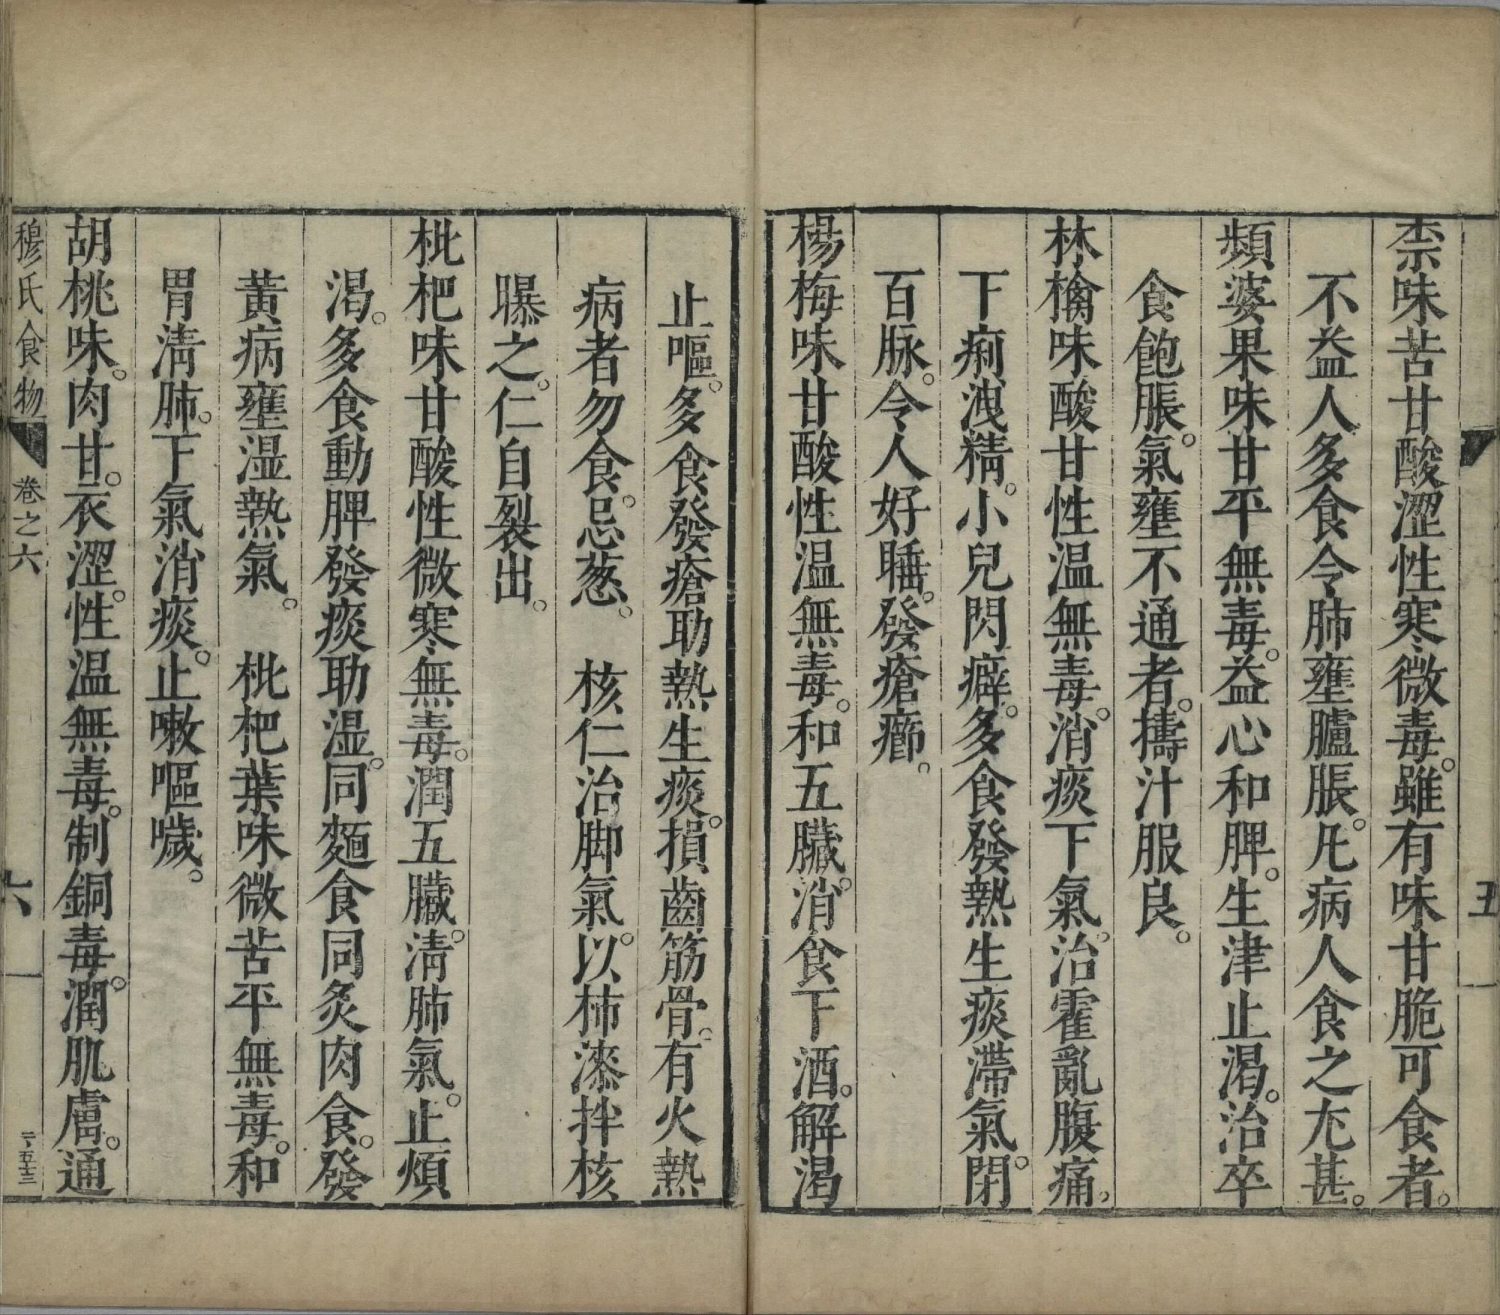 五
柰味苦甘酸澀性寒微毒。雖有味甘脆可食者。
不益人多食令肺壅臚脹。凡病人食之尤甚。
頻婆果味甘平無毒。益心和脾。生津止渴。治卒
食飽脹。氣壅不通者。擣汁服良。
林檎味酸甘性温無毒。消痰下氣。治霍亂腹痛。
下痢洩精。小兒閃癖。多食發熱生痰滯氣。閉
百脉。令人好睡。發瘡癤。
楊梅味甘酸性温無毒。和五臟。消食下酒。解渴
止嘔。多食發瘡助熱生痰。損齒筋骨。有火熱
病者勿食。忌葱。　核仁治脚氣。以柿漆拌核
曝之。仁自裂出。
枇杷味甘酸性微寒無毒。潤五臟。清肺氣。止煩
渴。多食動脾發痰助湿。同麵食同炙肉食。發
黃病壅湿熱氣。　枇杷葉味微苦平無毒。和
胃清肺。下氣消痰。止嗽嘔噦。
胡桃味。肉甘。衣澀。性温無毒。制銅毒。潤肌膚。通
穆氏食物　卷之六　六